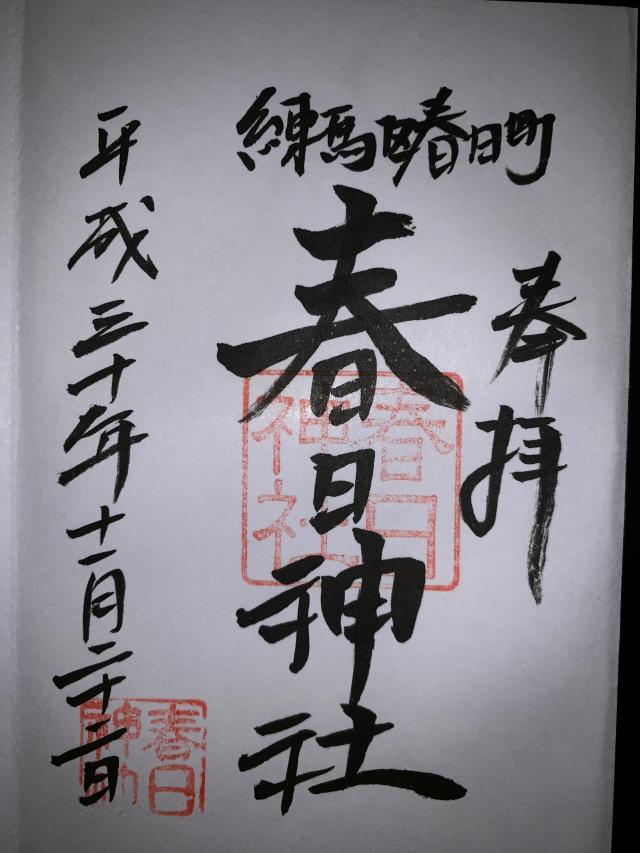 奉拝
練馬区春日町
春日神社
春日
神社
平成三十年十一月二十二日
春日